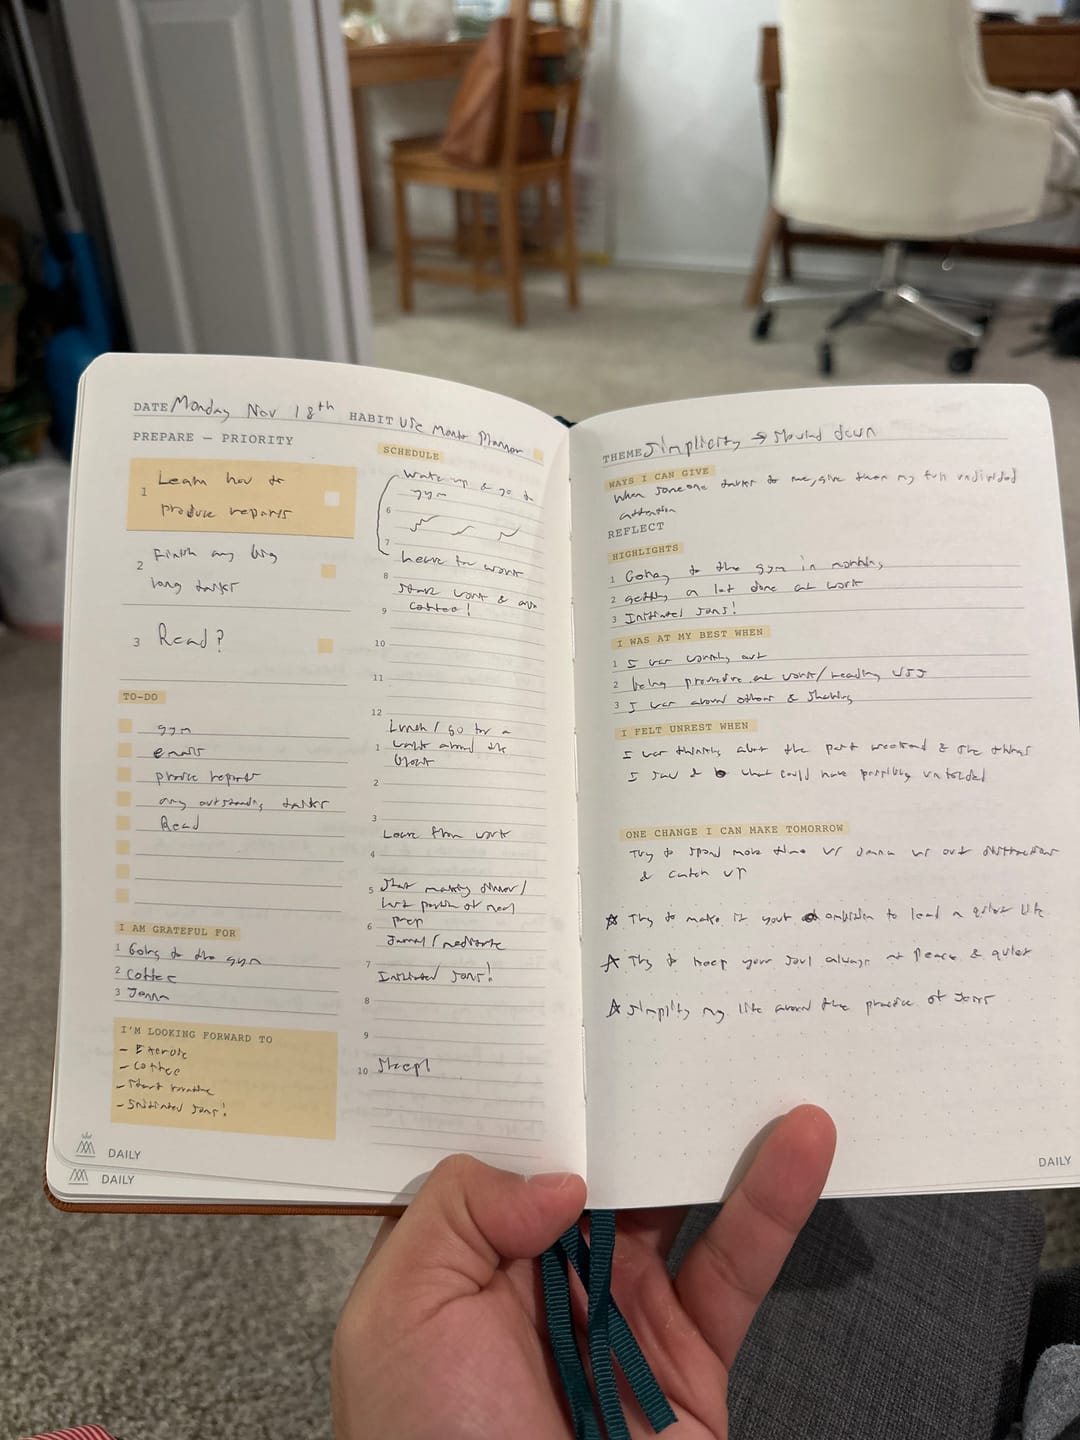 DATE Monday Nov 18th HABIT Use Planner
PREPARE — PRIORITY
1 Learn how to
produce reports
2 Finish any big
long tasks
3 Read?
TO-DO
gym
emails
reports
any outstanding tasks
Read
I AM GRATEFUL FOR
1 Going to the gym
2 Coffee
3 Jenna
I'M LOOKING FORWARD TO
- Exercise
- Coffee
- routine
- Jons!
SCHEDULE
Wake up & go to
gym
6
7
Leave for work
8
Start work &
9 coffee!
10
11
12
Lunch / go for a
1 walk around the
block
2
3
Leave from work
4
5 Start making dinner/
last portion of meal
6 prep
Journal / meditate
7
8
9
10 Sleep!
DAILY
DAILY
THEME Simplicity → 
WAYS I CAN GIVE
When someone talks to me, give them my full undivided
attention
REFLECT
HIGHLIGHTS
1 Going to the gym in morning
2 getting a lot done at work
3
I WAS AT MY BEST WHEN
1 I was working out
2 being productive at work/reading
3 I was around others & sharing
I FELT UNREST WHEN
I was thinking about the past weekend & the things
I said & what could have possibly unfolded
ONE CHANGE I CAN MAKE TOMORROW
Try to spend more time w/ w/ out distractions
& catch up
☆ Try to make it your ambition to lead a quiet life
☆ Try to keep your soul always at peace & quiet
☆ Simplify my life around the practice of
DAILY